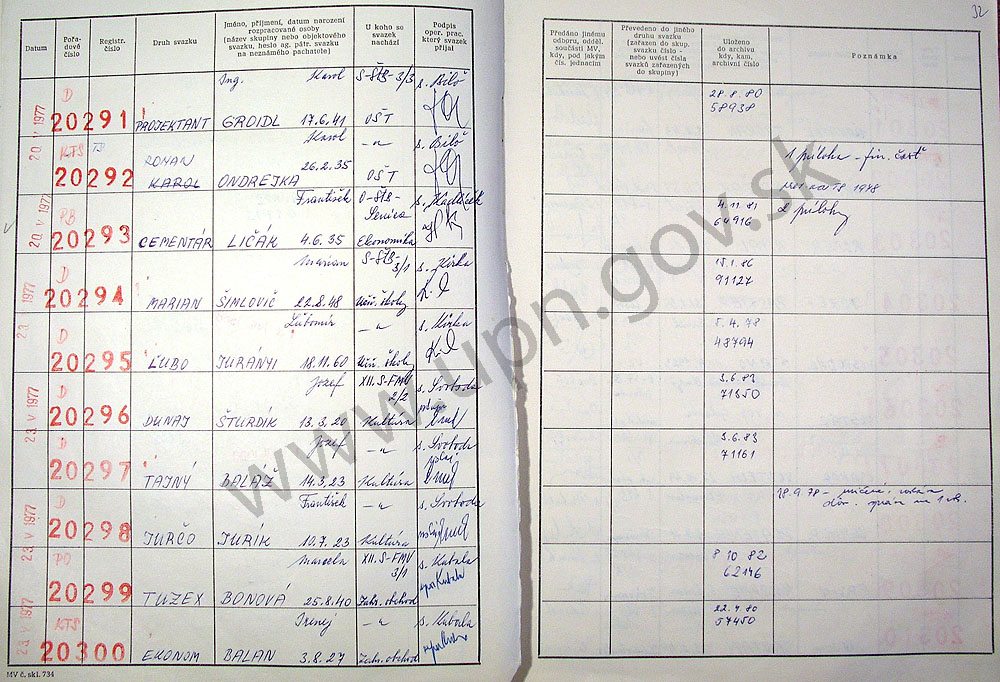 32
Datum
Pořa-
dové
číslo
Registr.
číslo
Druh svazku
Jméno, příjmení, datum narození
rozpracované osoby
(název skupiny nebo objektového
svazku, heslo ag. pátr. svazku
na neznámého pachatele)
U koho se
svazek
nachází
Podpis
oper. prac.,
který svazek
přijal
Předáno jinému
odboru, odděl.
součásti MV,
kdy, pod jakým
čís. jednacím
Převedeno do jiného
druhu svazku
(zařazen do skup.
svazku číslo -
nebo uvést čísla
svazků zařazených
do skupiny)
Uloženo
do archivu
kdy, kam,
archivní číslo
Poznámka
20. V 1977
D
20291
PROJEKTANT
Ing. Karol
GROIDL 17.6.41
S-ŠtB-3/3
OŠT
s. Bilč
28.8.80
58938
KTS
20292
ROMAN
KAROL
Karol
ONDREJKA 26.2.35
OŠT
s. Bilč
1 príloha - fin. časť
20. V 1977
PB
20293
CEMENTÁR
František
LIČÁK 4.6.35
O-ŠtB-
Senica
Ekonomika
4.11.81
64916
2 prílohy
D
20294
MARIAN
Marian
ŠIMLOVIČ 22.8.48
S-ŠtB-
3/1
školy
s. Kirka
15.1.86
91127
23. V 1977
D
20295
ĽUBO
Ľubomír
JURÁNYI 18.11.60
školy
s. Kirka
5.4.78
48794
23. V 1977
D
20296
DUNAJ
Jozef
ŠTURDÍK 13.3.20
XII. S-FMV
2/2
Kultúra
s. Svoboda
3.6.83
71350
D
20297
TAJNÝ
Jozef
BALÁŽ 14.3.23
Kultúra
s. Svoboda
3.6.83
71161
23. V 1977
D
20298
JURČO
František
JURÍK 10.7.23
Kultúra
s. Svoboda
18.9.78 -
23. V 1977
PO
20299
TUZEX
Marcela
BONOVÁ 25.8.40
XII. S-FMV
3/1
Zahr. obchod
s. Kubala
8.10.82
62146
23. V 1977
KTS
20300
EKONOM
Irenej
BALAN 3.8.27
Zahr. obchod
s. Kubala
22.4.80
57450
MV č. skl. 734
www.upn.gov.sk